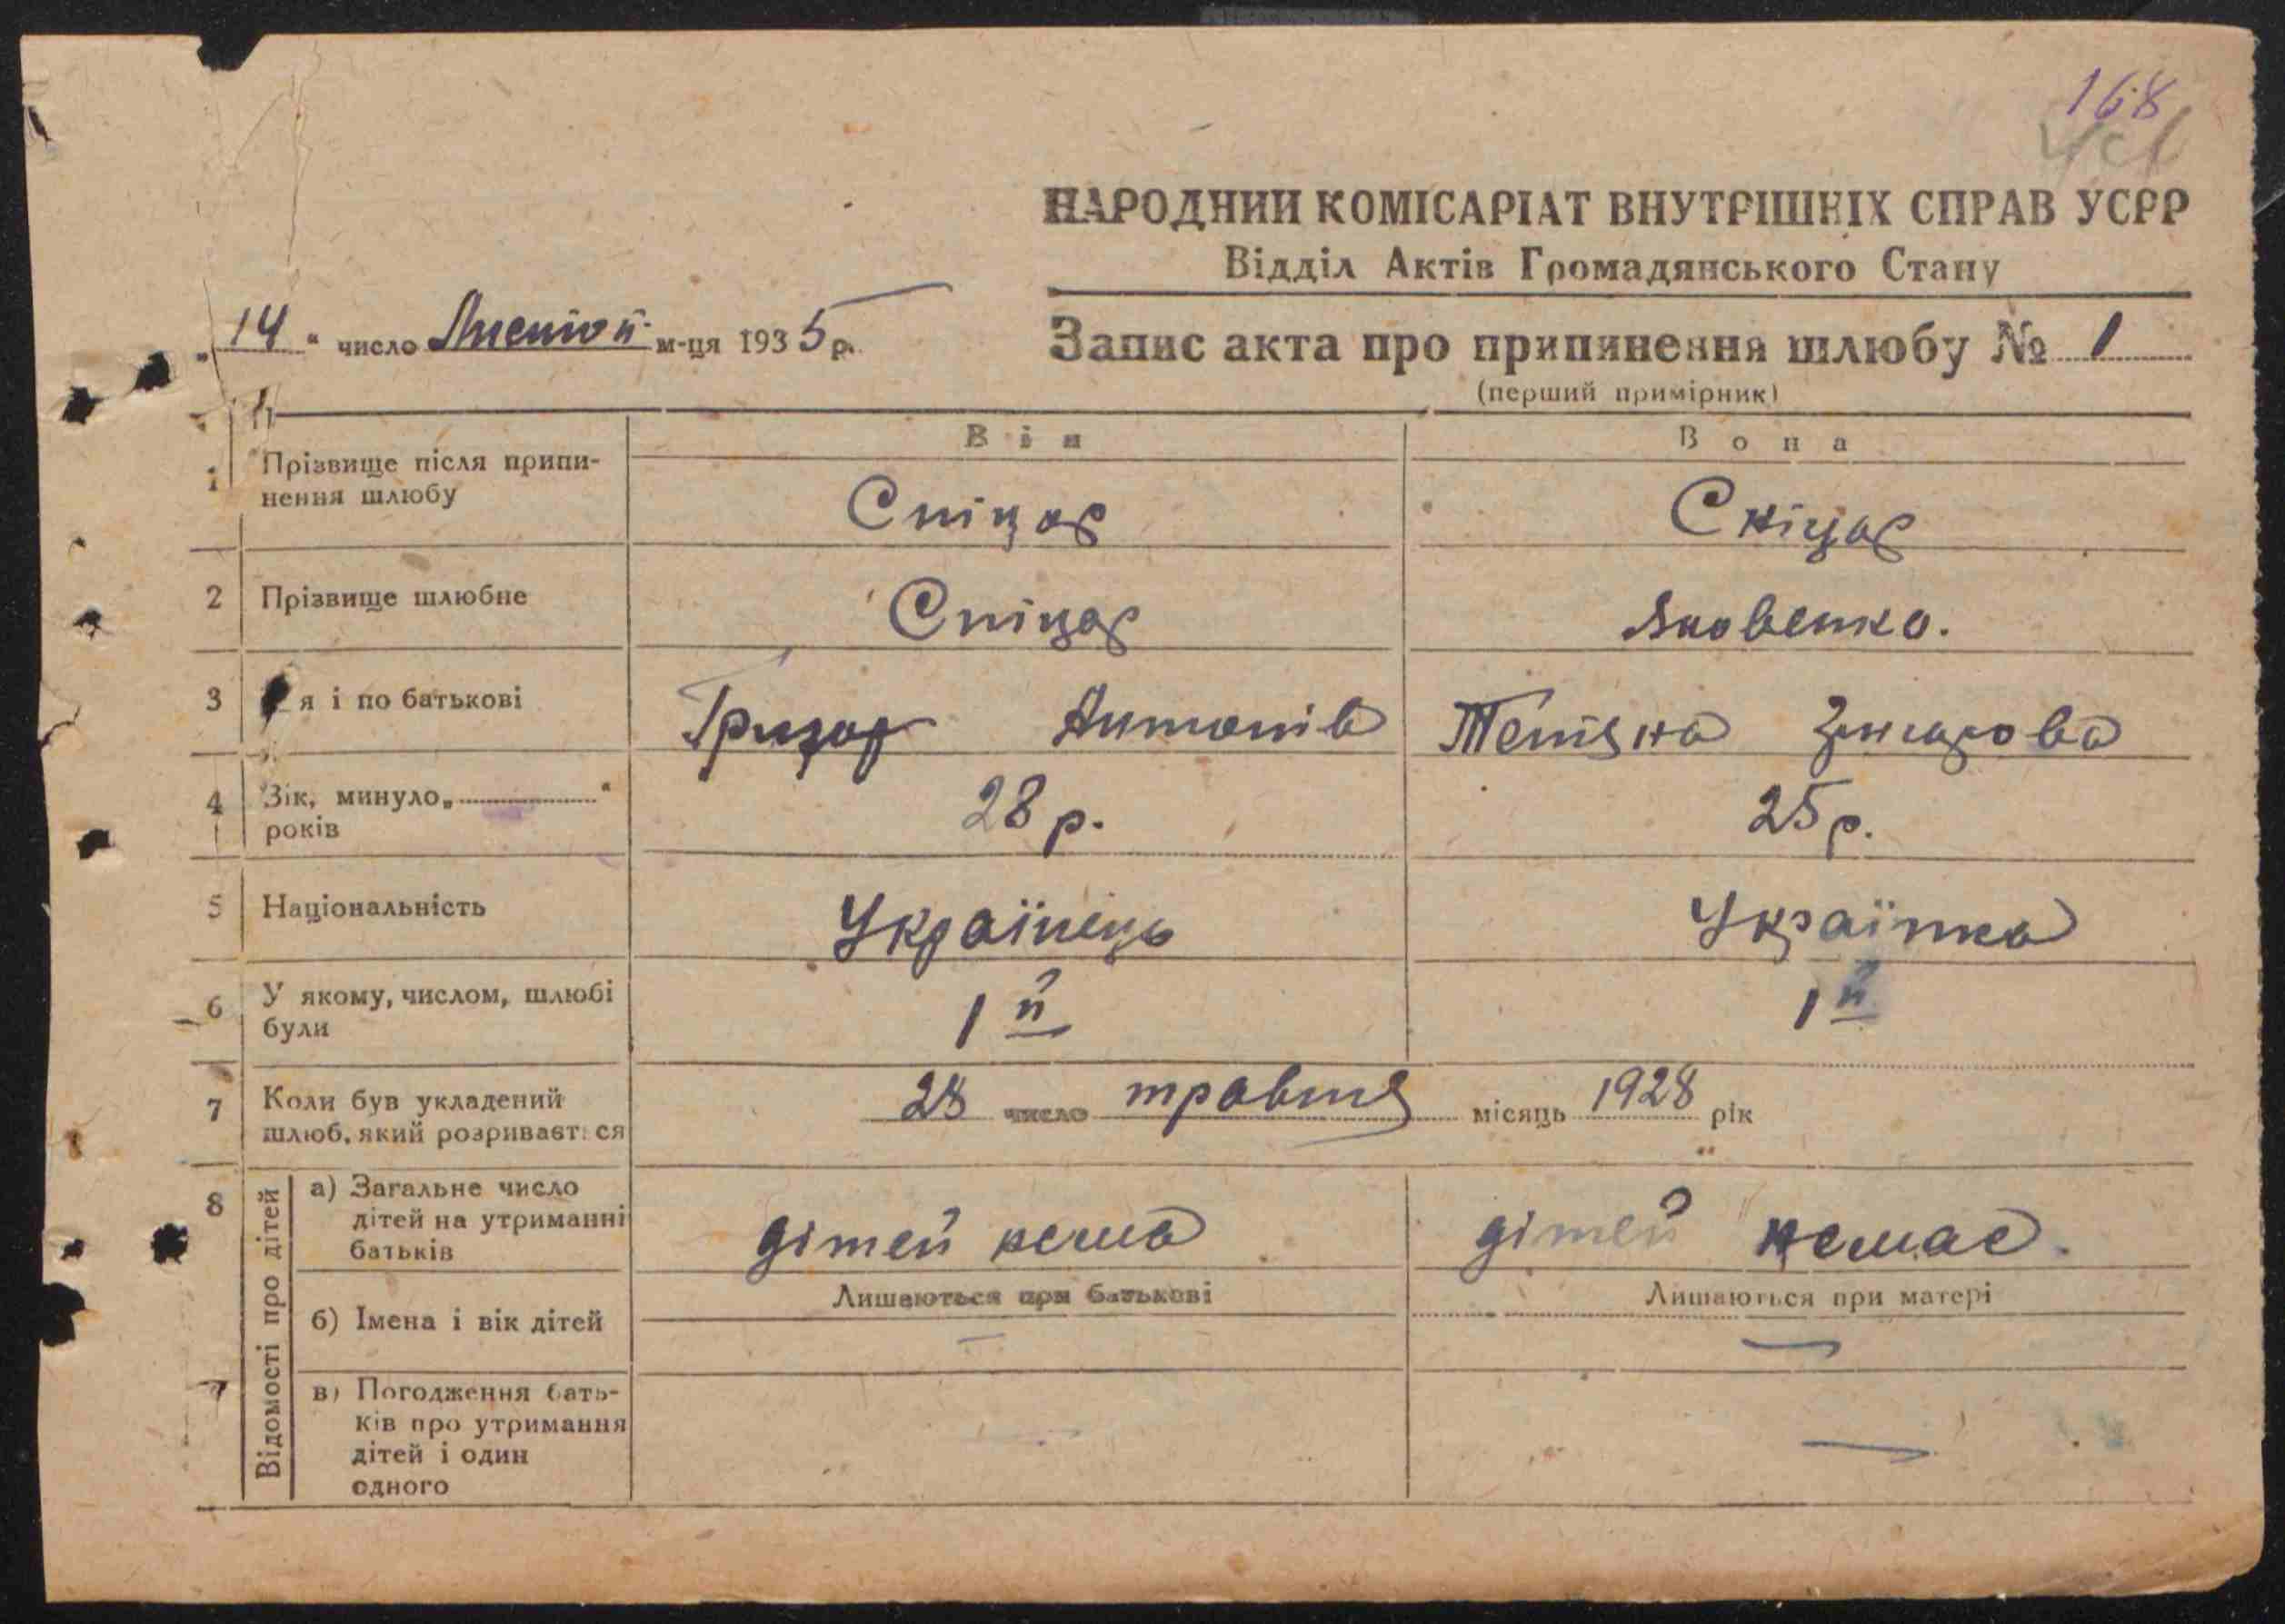 168
НАРОДНИЙ КОМІСАРІАТ ВНУТРІШНІХ СПРАВ УСРР
Відділ Актів Громадянського Стану
„14“ число м-ця 1935 р.
Запис акта про припинення шлюбу № 1
(перший примірник)
Він Вона
1 Прізвище після припи-
нення шлюбу
Сніцар Сніцар
2 Прізвище шлюбне Сніцар Яковенко.
3 я і по батькові Грицор Антонів Тетяна
4 Вік, минуло „ “
років
28 р. 25 р.
5 Національність Українець Українка
6 У якому, числом, шлюбі
були
1й 1й
7 Коли був укладений
шлюб, який розривається
28 число травня місяць 1928 рік
8 Відомості про дітей
а) Загальне число
дітей на утриманні
батьків
дітей нема дітей немає.
Лишаються при батькові Лишаються при матері
б) Імена і вік дітей — —
в) Погодження бать-
ків про утримання
дітей і один
одного
—